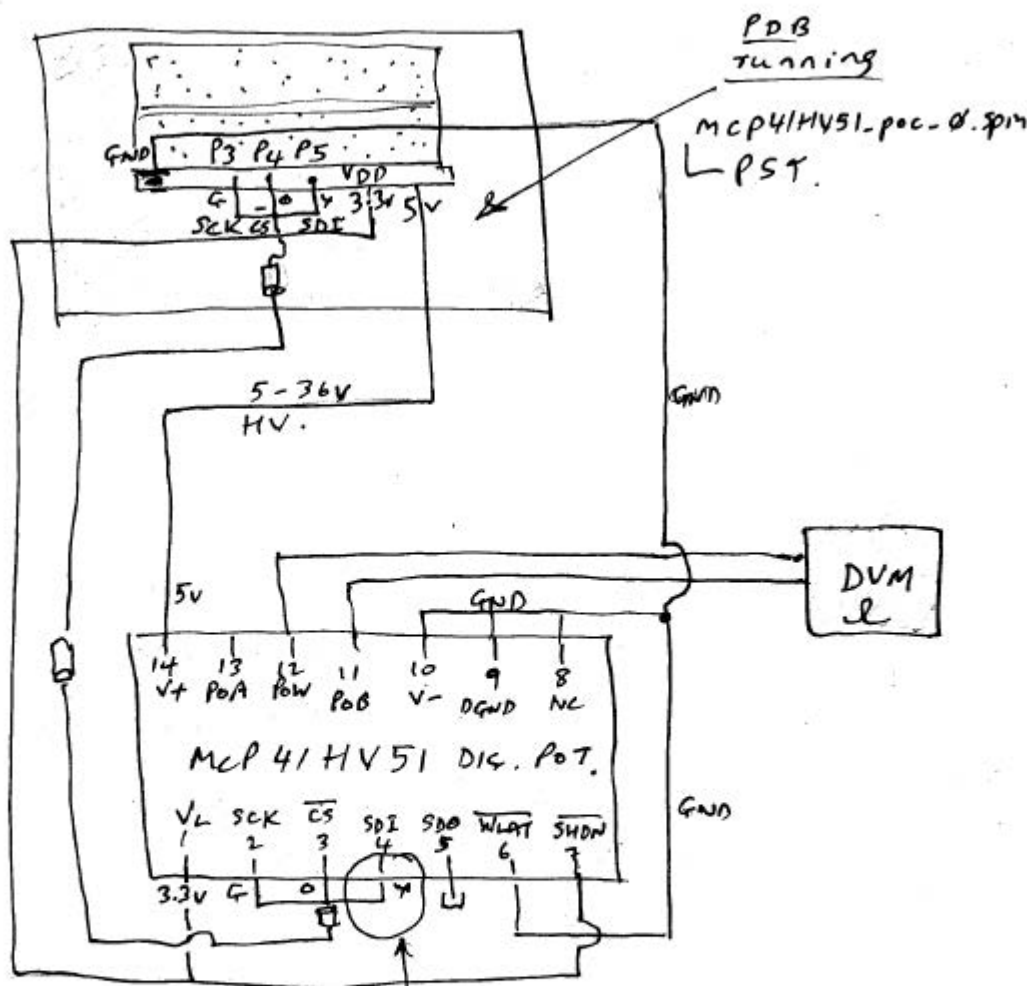 PDB
running
MCP41HV51_poc_0.spin
PST.
GND P3 P4 P5 VDD
G - O Y 3.3V 5V
SCK CS SDI
5-36V
HV.
GND
5V
GND
DVM
14 13 12 11 10 9 8
V+ POA POW POB V- DGND NC
MCP41HV51 DIG. POT.
VL SCK CS SDI SDO WLAT SHDN
1 2 3 4 5 6 7
3.3V G O Y
GND